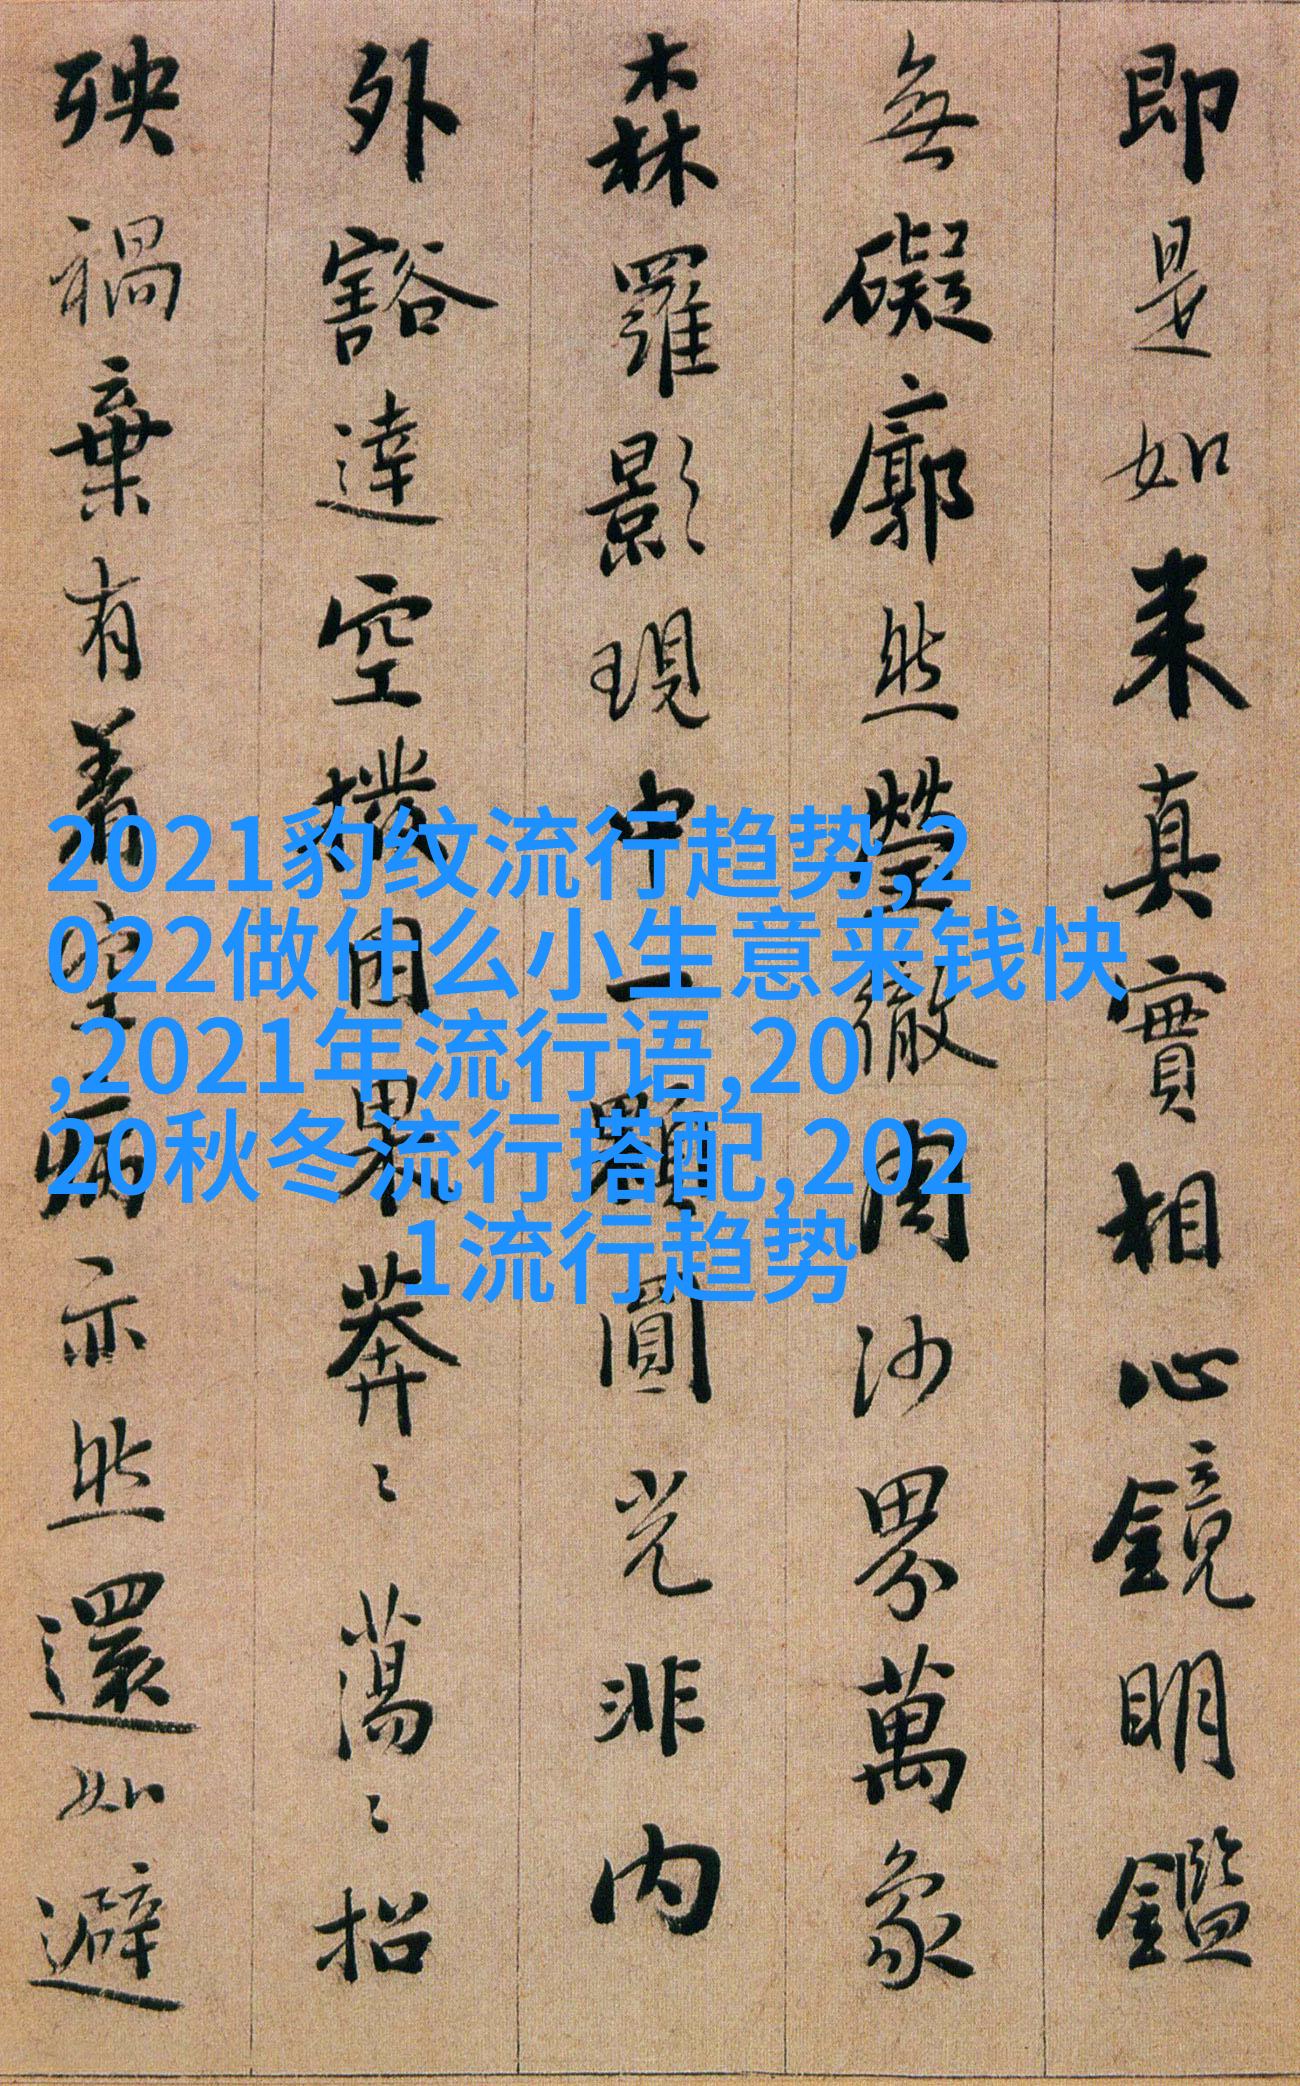 即是如来真實相心鏡明鑑
無礙廓然瑩徹周沙界萬象
森羅影現中一顆圓光非内
外豁達空撥因果莽〻蕩〻招
殃禍棄有著空病亦然還如避
2021豹纹流行趋势,2
022做什么小生意来钱快
,2021年流行语,20
20秋冬流行搭配,202
1流行趋势